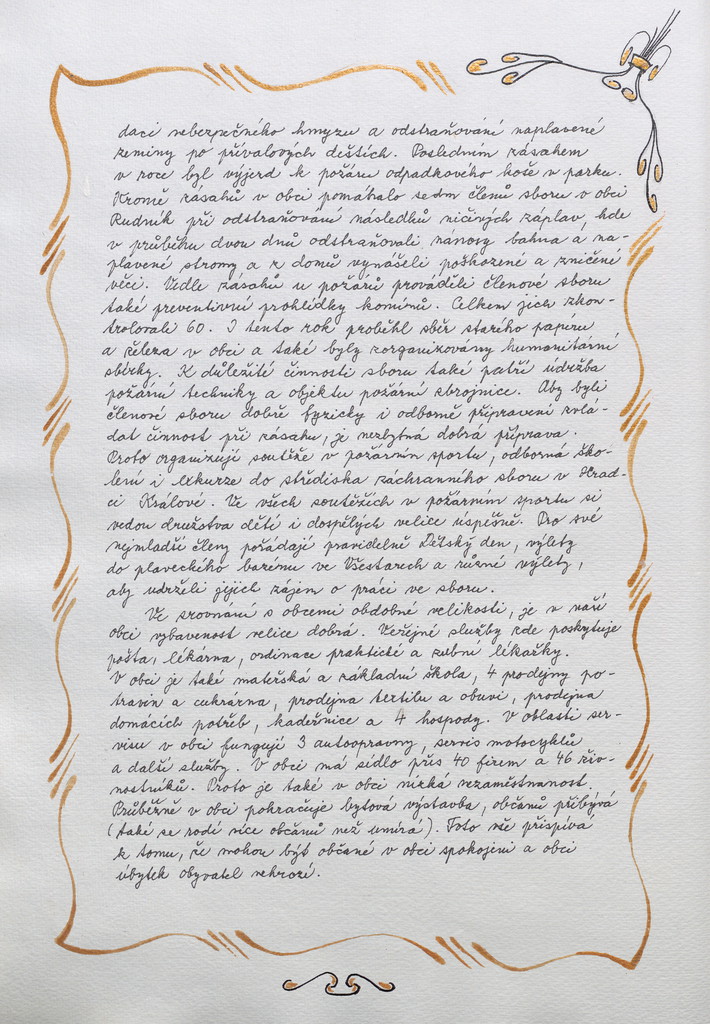 daci nebezpečného hmyzu a odstraňování naplavené
zeminy po přívalových deštích. Posledním zásahem
v roce byl výjezd k požáru odpadkového koše v parku.
Kromě zásahů v obci pomáhalo sedm členů sboru v obci
Rudník při odstraňování následků ničivých záplav, kde
v průběhu dvou dnů odstraňovali nánosy bahna a na-
plavené stromy a z domů vynášeli poškozené a zničené
věci. Vedle zásahů u požárů prováděli členové sboru
také preventivní prohlídky komínů. Celkem jich zkon-
trolovali 60. I tento rok proběhl sběr starého papíru
a železa v obci a také byly zorganizovány humanitární
sbírky. K důležité činnosti sboru také patří údržba
požární techniky a objektu požární zbrojnice. Aby byli
členové sboru dobře fyzicky i odborně připraveni zvlá-
dat činnost při zásahu, je nezbytná dobrá příprava.
Proto organizují soutěže v požárním sportu, odborná ško-
lení i exkurze do střediska záchranního sboru v Hrad-
ci Králové. Ve všech soutěžích v požárním sportu si
vedou družstva dětí i dospělých velice úspěšně. Pro své
nejmladší členy pořádají pravidelně Dětský den, výlety
do plaveckého bazénu ve Všestarech a různé výlety,
aby udrželi jejich zájem o práci ve sboru.
Ve srovnání s obcemi obdobné velikosti, je v naší
obci vybavenost velice dobrá. Veřejné služby zde poskytuje
pošta, lékárna, ordinace praktické a zubní lékařky.
V obci je také mateřská a základní škola, 4 prodejny po-
travin a cukrárna, prodejna textilu a obuvi, prodejna
domácích potřeb, kadeřnice a 4 hospody. V oblasti ser-
visu v obci fungují 3 autoopravny, servis motocyklů
a další služby. V obci má sídlo přes 40 firem a 46 živ-
nostníků. Proto je také v obci nízká nezaměstnanost.
Průběžně v obci pokračuje bytová výstavba, občanů přibývá
(také se rodí více občanů než umírá). Toto vše přispívá
k tomu, že mohou být občané v obci spokojeni a obci
úbytek obyvatel nehrozí.